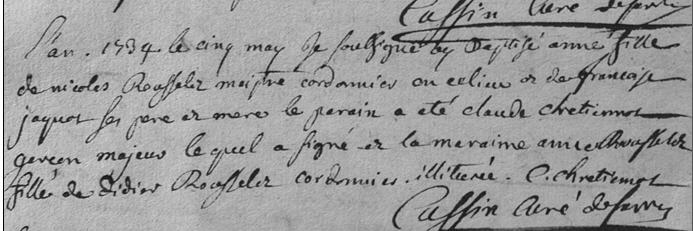 Cassin Curé
L'an . 1734 le cinq may Je soussigné ay Baptisé anne fille
de nicolas Rousselez maistre cordonnier en ce lieu et de francoise
jaquot ses pere et mere le parain a eté claude chretiennot
garcon majeur lequel a signé et la maraine anne Rousselez
fille de Didier Rousselez cordonnier . illiterée . C. chretiennot
Cassin Curé